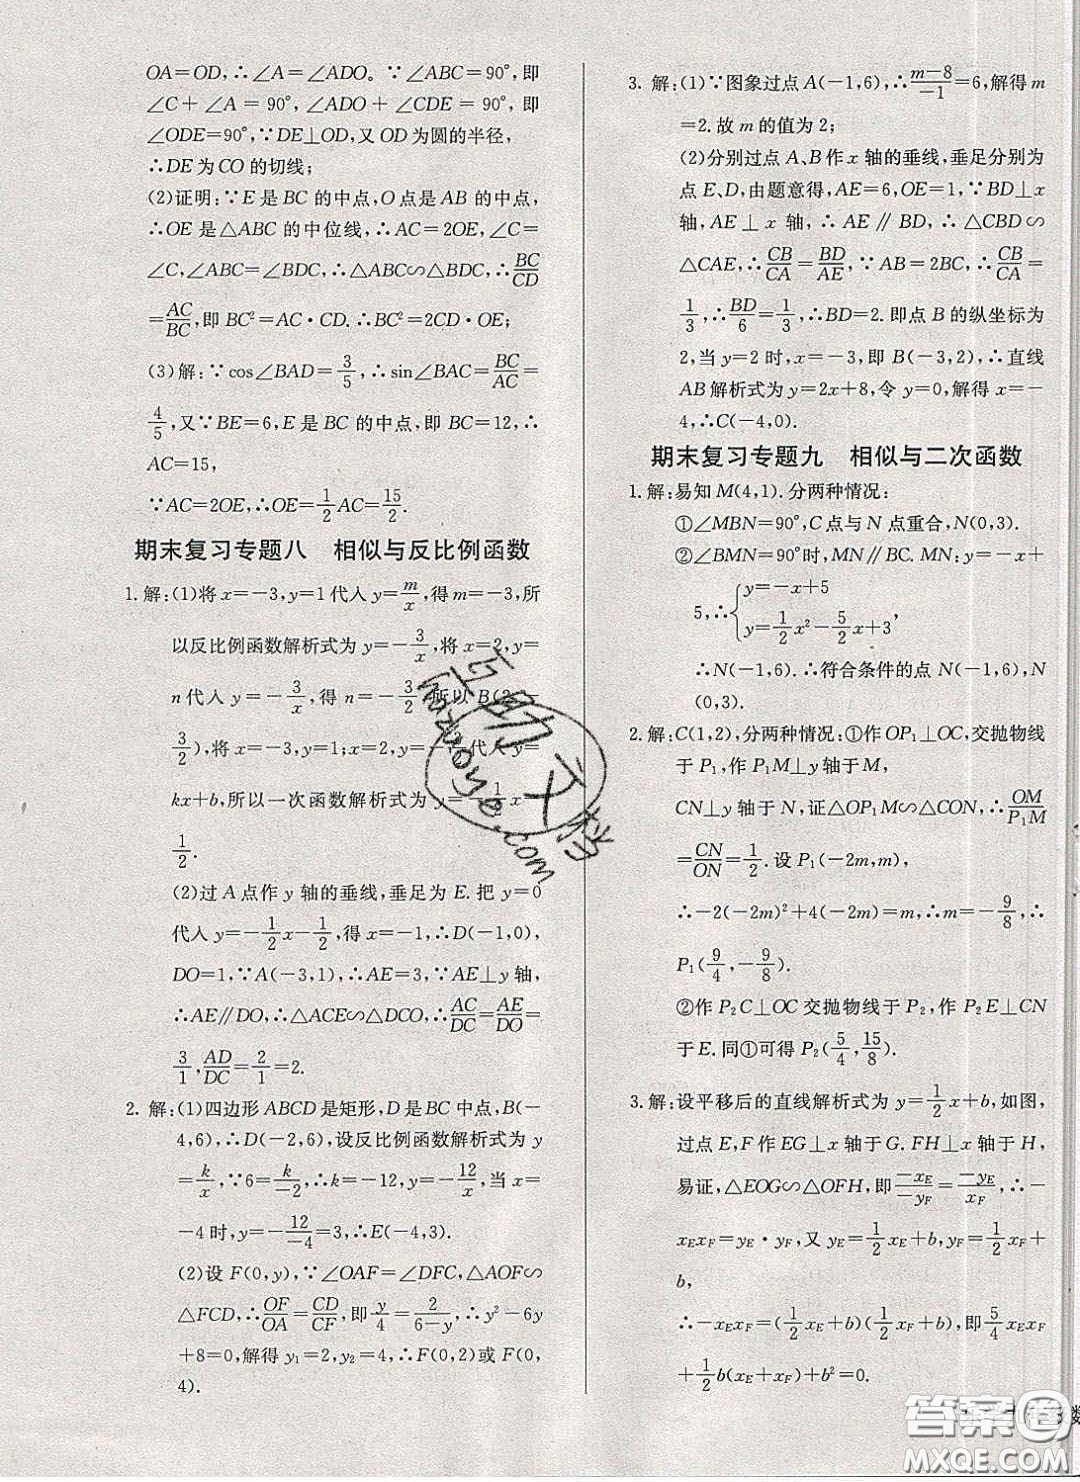 OA=OD,∴∠A=∠ADO。∵∠ABC=90°,即
∠C+∠A=90°,∠ADO+∠CDE=90°,即
∠ODE=90°,∵DE⊥OD,又OD为圆的半径,
∴DE为CO的切线;
(2)证明:∵E是BC的中点,O点是AB的中点,
∴OE是△ABC的中位线,∴AC=2OE,∠C=
∠C,∠ABC=∠BDC,∴△ABC∽△BDC,∴BC/CD
=AC/BC,即BC²=AC·CD.∴BC²=2CD·OE;
(3)解:∵cos∠BAD=3/5,∴sin∠BAC=BC/AC=
4/5,又∵BE=6,E是BC的中点,即BC=12,∴
AC=15,
∵AC=2OE,∴OE=1/2AC=15/2.
期末复习专题八 相似与反比例函数
1.解:(1)将x=-3,y=1代入y=m/x,得m=-3,所
以反比例函数解析式为y=-3/x,将x=2,y=
n代入y=-3/x,得n=-3/2,所以B(2,-
3/2),将x=-3,y=1;x=2,y=-3/2代入y=
kx+b,所以一次函数解析式为y=-1/2x-
1/2.
(2)过A点作y轴的垂线,垂足为E.把y=0
代入y=-1/2x-1/2,得x=-1,∴D(-1,0),
DO=1,∵A(-3,1),∴AE=3,∵AE⊥y轴,
∴AE∥DO,∴△ACE∽△DCO,∴AC/DC=AE/DO=
3/1,AD/DC=2/1=2.
2. 解:(1)四边形ABCD是矩形,D是BC中点,B(-
4,6),∴D(-2,6),设反比例函数解析式为y
=k/x,∵6=k/-2,∴k=-12,∴y=-12/x,当x=
-4时,y=-12/-4=3,∴E(-4,3).
(2)设F(0,y),∵∠OAF=∠DFC,△AOF∽
△FCD,∴OF/OA=CD/CF,即y/4=2/6-y,∴y²-6y
+8=0,解得y₁=2,y₂=4,∴F(0,2)或F(0,
4).
3. 解:(1)∵图象过点A(-1,6),∴m-8/-1=6,解得m
=2.故m的值为2;
(2)分别过点A、B作x轴的垂线,垂足分别为
点E、D,由题意得,AE=6,OE=1,∵BD⊥x
轴,AE⊥x轴,∴AE∥BD,∴△CBD∽
△CAE,∴CB/CA=BD/AE,∵AB=2BC,∴CB/CA=
1/3,∴BD/6=1/3,∴BD=2.即点B的纵坐标为
2,当y=2时,x=-3,即B(-3,2),∴直线
AB解析式为y=2x+8,令y=0,解得x=-
4,∴C(-4,0).
期末复习专题九 相似与二次函数
1.解:易知M(4,1).分两种情况:
①∠MBN=90°,C点与N点重合,N(0,3).
②∠BMN=90°时,MN∥BC.MN:y=-x+
5,∴{y=-x+5
y=1/2x²-5/2x+3,
∴N(-1,6).∴符合条件的点N(-1,6),N
(0,3).
2.解:C(1,2),分两种情况:①作OP₁⊥OC,交抛物线
于P₁,作P₁M⊥y轴于M,
CN⊥y轴于N,证△OP₁M∽△CON,∴OM/P₁M
=CN/ON=1/2.设P₁(-2m,m),
∴-2(-2m)²+4(-2m)=m,∴m=-9/8,∴
P₁(9/4,-9/8).
②作P₂C⊥OC交抛物线于P₂,作P₂E⊥CN
于E.同①可得P₂(5/4,15/8).
3.解:设平移后的直线解析式为y=1/2x+b,如图,
过点E,F作EG⊥x轴于G.FH⊥x轴于H,
易证,△EOG∽△OFH,即-x_E/-y_F=-y_E/x_F,∴-
x_Ex_F=y_E·y_F,又y_E=1/2x_E+b,y_F=1/2x_F+
b,
∴-x_Ex_F=(1/2x_E+b)(1/2x_F+b),即5/4x_Ex_F
+1/2b(x_E+x_F)+b²=0.
互助文档
huzuoye.com
答案圈
MXQE.COM